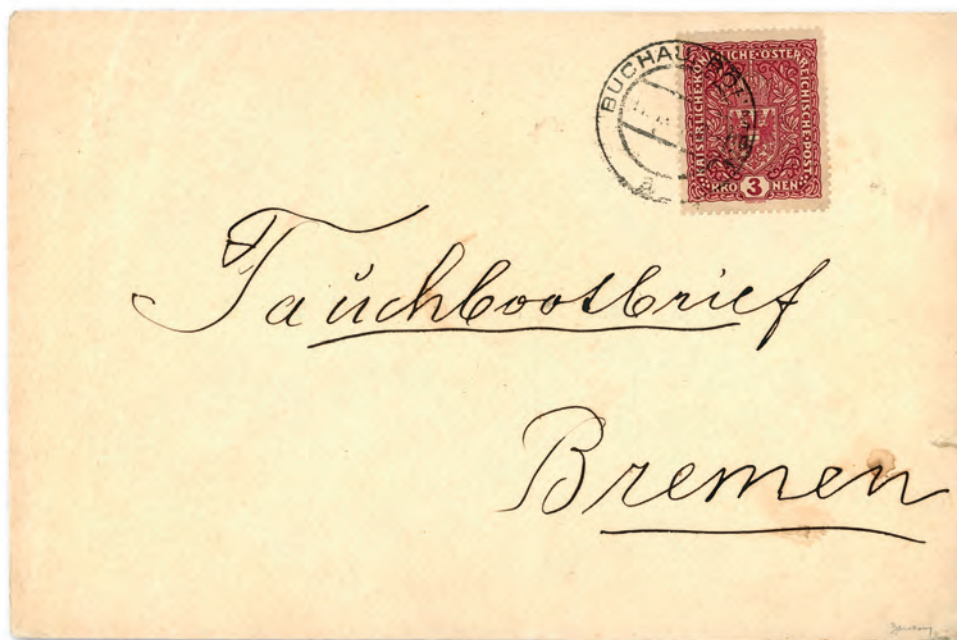 BUCHAU
KAISERLICHE·KÖNIGLICHE·ÖSTERREICHISCHE·POST
KRO 3 NEN
Tauchbootbrief
Bremen